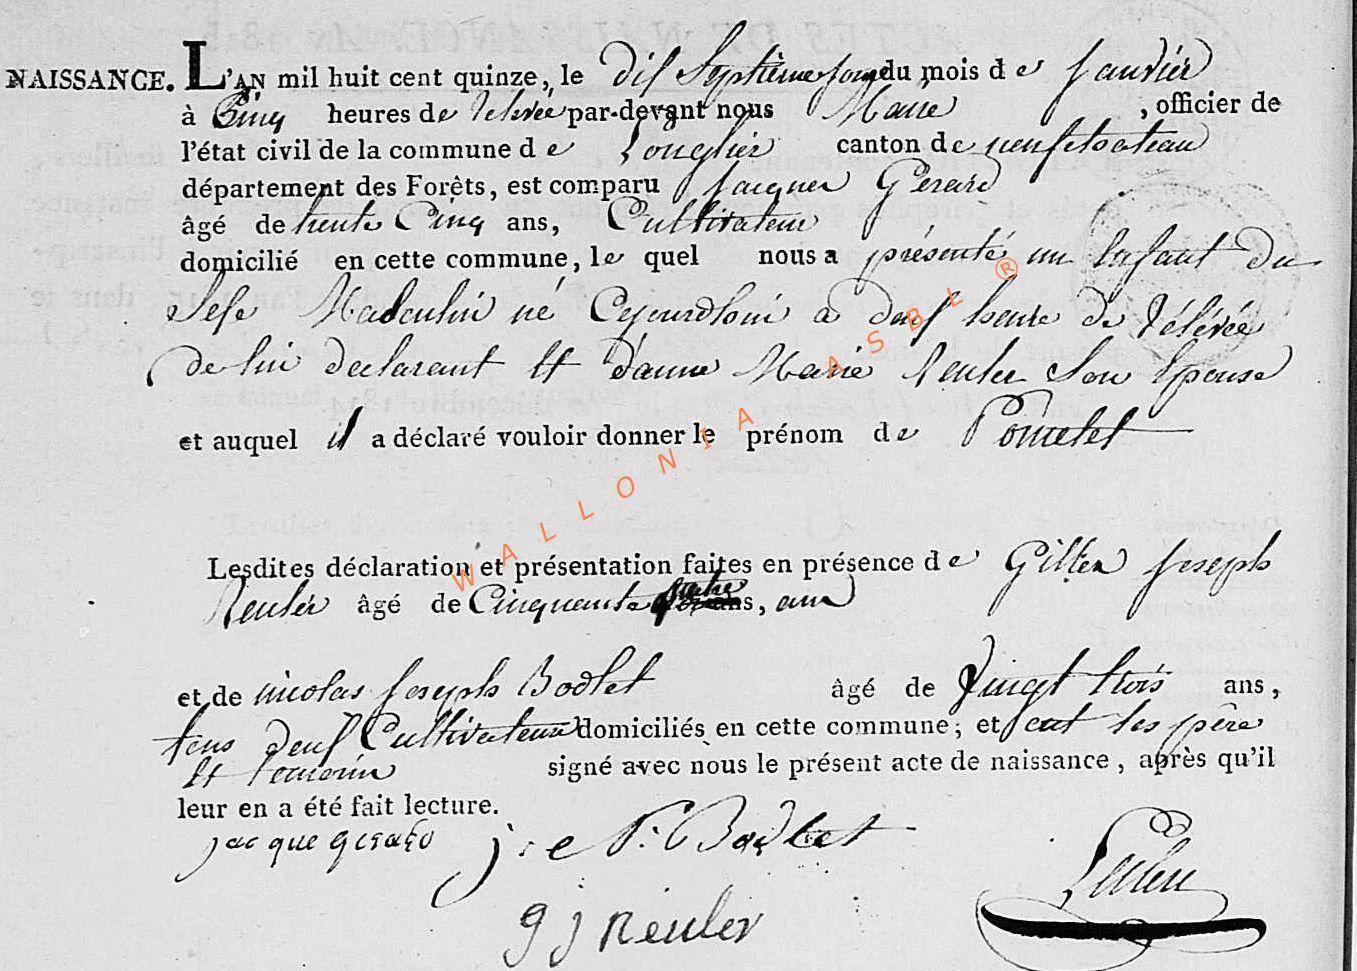 NAISSANCE. L'AN mil huit cent quinze, le dix Septieme jour du mois de janvier
à Cinq heures de relevée par-devant nous Maire , officier de
l'état civil de la commune de Longlier canton de neufchateau
département des Forêts, est comparu Jacques Gerard
âgé de trente Cinq ans, Cultivateur
domicilié en cette commune, le quel nous a présenté un Enfant du
Sexe Masculin né Cejourdhui a deux heure de rélévée
de lui declarant Et d'anne Marie Reuler Son Epouse
et auquel il a déclaré vouloir donner le prénom de Poncelet
Lesdites déclaration et présentation faites en présence de Gilles Joseph
Reuler âgé de Cinquante quatre ans,
et de nicolas Joseph Bodlet âgé de Vingt trois ans,
tous deux Cultivateurs domiciliés en cette commune; et ont les père
Et temoins signé avec nous le présent acte de naissance, après qu'il
leur en a été fait lecture.
jacque gerard j: e N: Bodlet
g j Reuler
WALLONIA ASBL ®